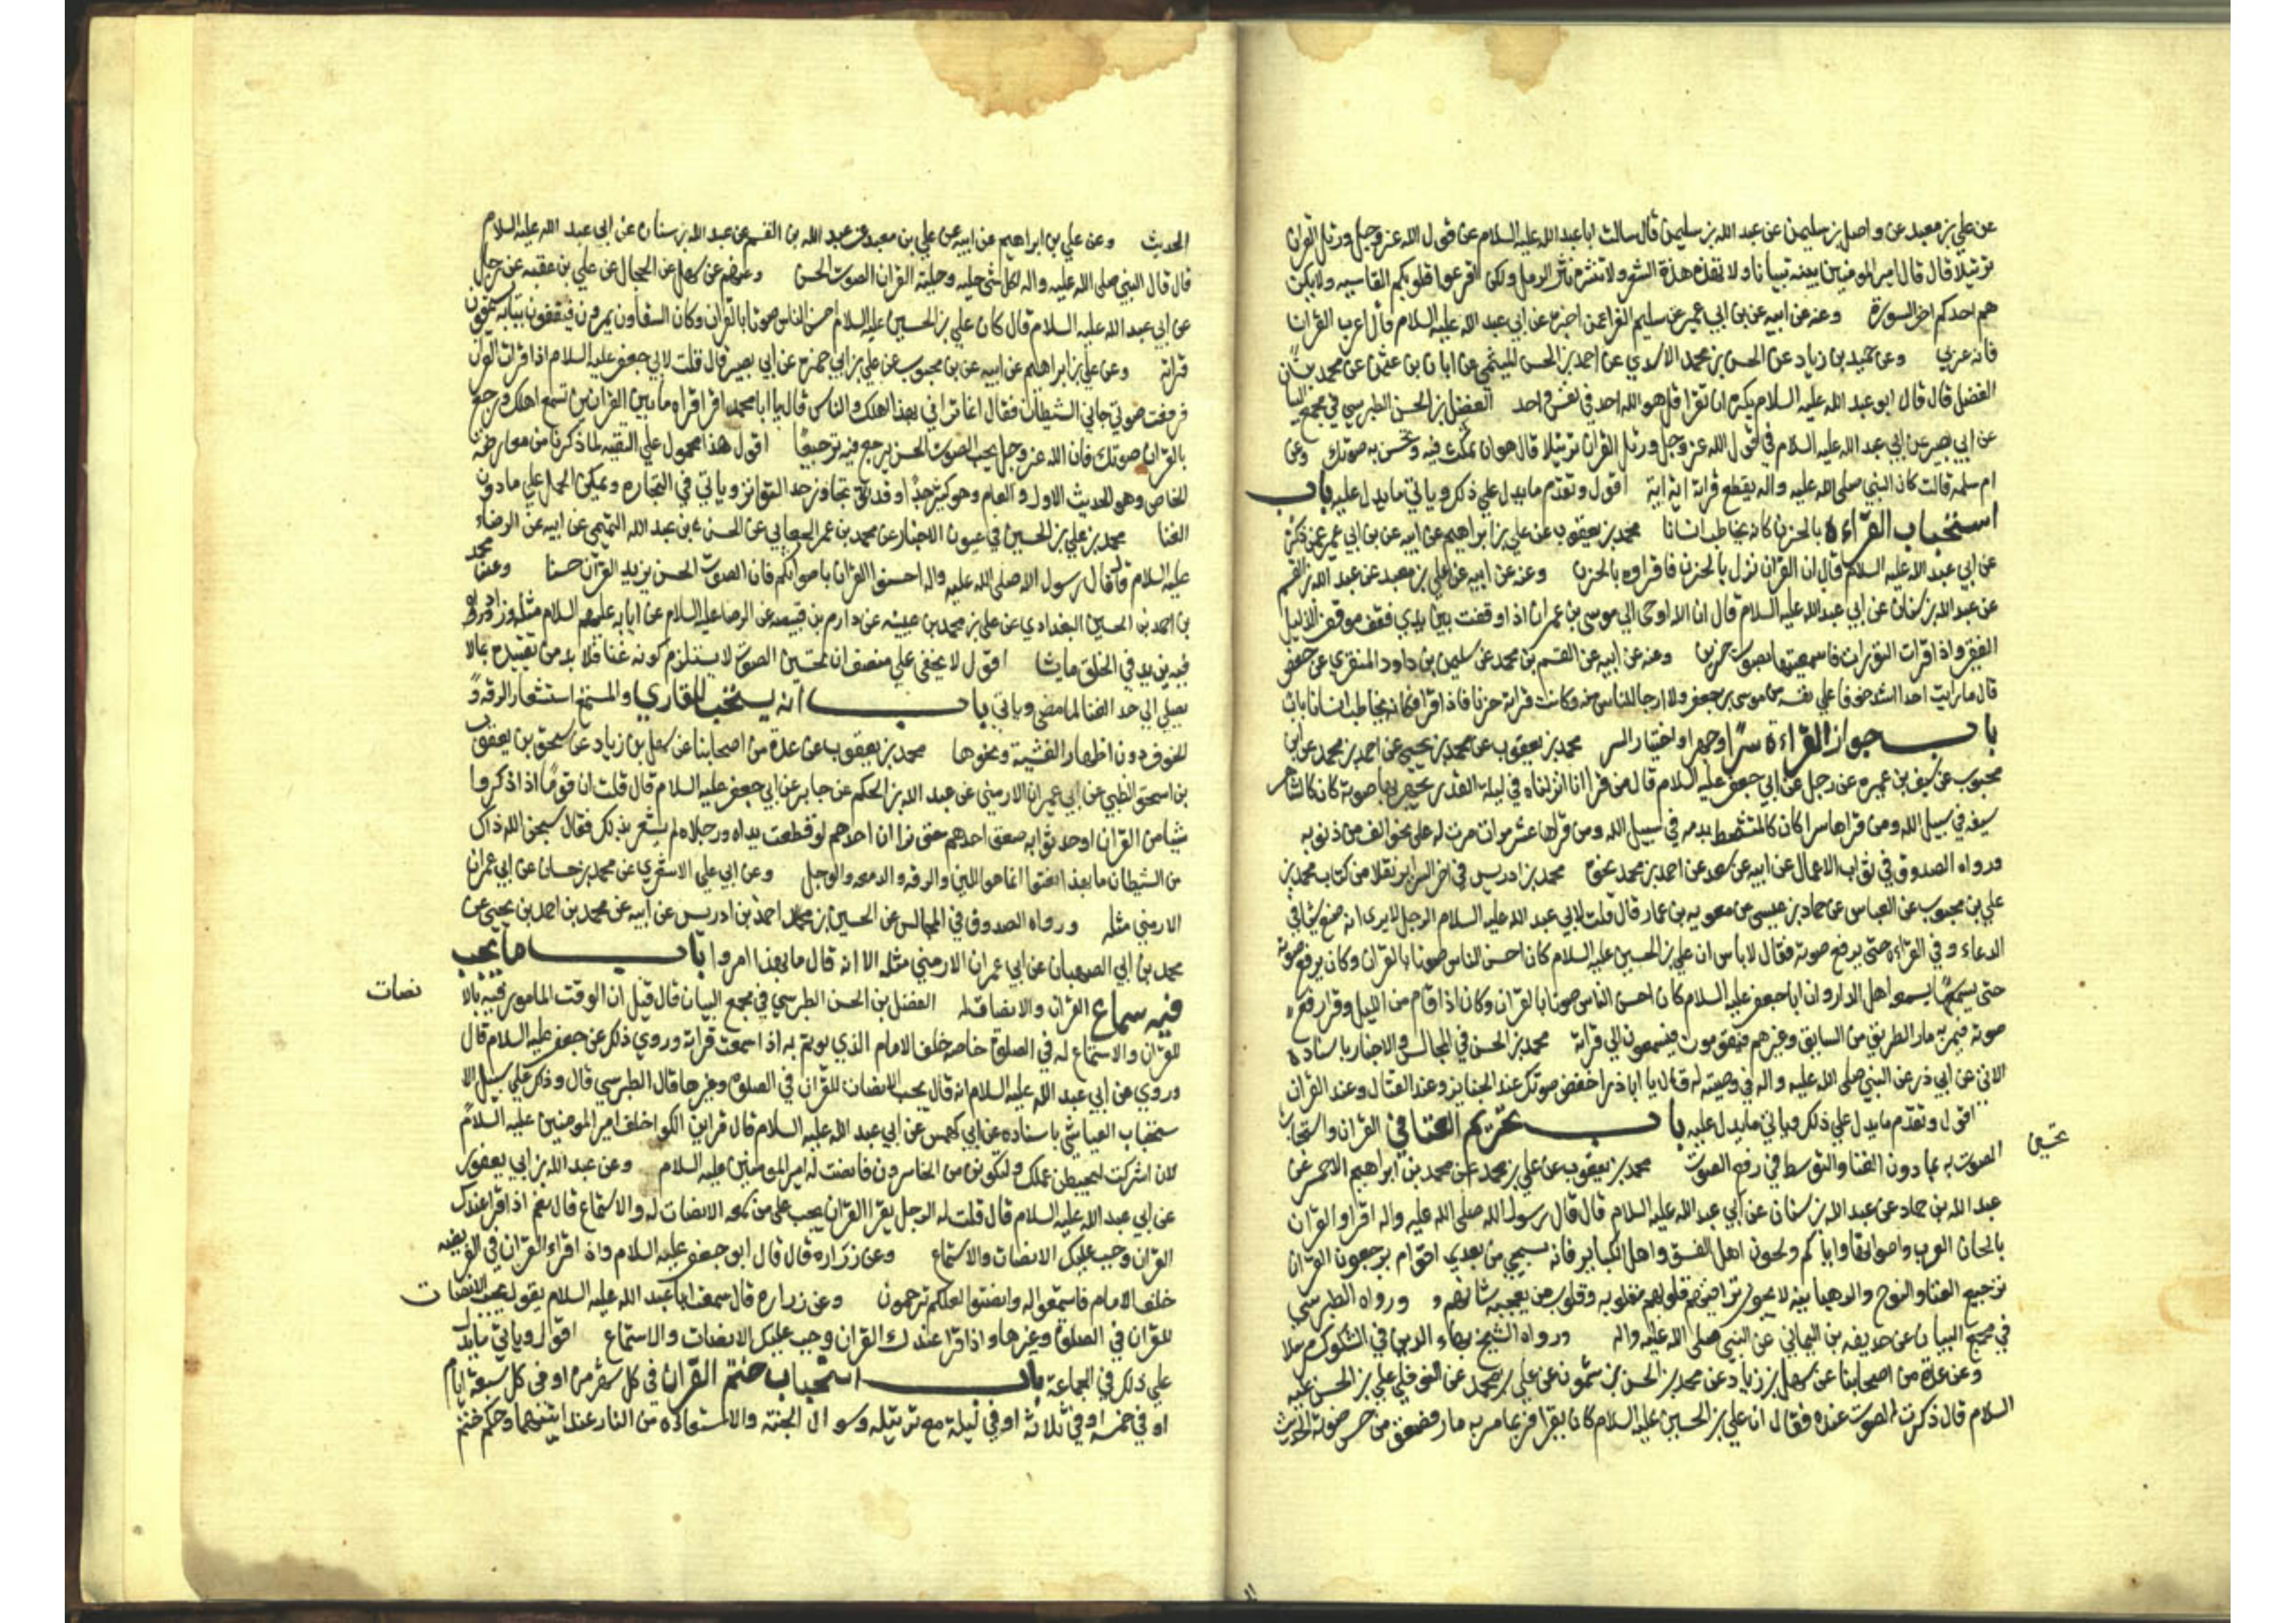 عن علي بن معبد عن واصل بن سليمن عن عبد الله بن سليمن قال سالت ابا عبد الله عليه السلام عن قول الله عز وجل ورتل القران
ترتيلا قال قال امير المومنين بينه تبيانا ولا تهذه هذة الشعر ولا تنثره نثر الرمل ولكن اقرعوا قلوبكم القاسيه ولا يكن
هم احدكم اخر السورة وعنه عن ابيه عن بن ابي عمير عن سليم الفرا عمن اخبره عن ابي عبد الله عليه السلام قال اعرب القران
فانه عربي وعن حميد بن زياد عن الحسن بن محمد الاسدي عن احمد بن الحسن الميثمي عن ابان بن عثمن عن محمد بن
الفضيل قال قال ابو عبد الله عليه السلام يكره ان تقرا قل هو الله احد في نفس واحد الفضل بن الحسن الطبرسي في مجمع البيان
عن ابي بصير عن ابي عبد الله عليه السلام في قول الله عز وجل ورتل القران ترتيلا قال هو ان تمكث فيه وتحسن به صوتك وعن
ام سلمه قالت كان النبي صلى الله عليه واله يقطع قراته اية اية اقول وتقدم ما يدل علي ذلك وياتي ما يدل عليه باب
استحباب القراءة بالحزن كانه يخاطب انسانا محمد بن يعقوب عن علي بن ابراهيم عن ابيه عن بن ابي عمير عمن ذكره
عن ابي عبد الله عليه السلام قال ان القران نزل بالحزن فاقراوه بالحزن وعنه عن ابيه عن علي بن معبد عن عبد الله بن القسم
عن عبد الله بن سنان عن ابي عبد الله عليه السلام قال ان الله اوحى الي موسى بن عمران اذا وقفت بين يدي فقف موقف الذليل
الفقير واذا قرات التورات فاسمعنيها بصوت حزين وعنه عن ابيه عن القسم بن محمد عن سليمن بن داود المنقري عن حفص
قال ما رايت احدا اشد خوفا علي نفسه من موسى بن جعفر ولا ارجا للناس منه وكانت قراته حزنا فاذا قرا فكانه يخاطب انسانا
باب جواز القراءة سرا وجهرا واختيار السر محمد بن يعقوب عن محمد بن يحيى عن احمد بن محمد عن ابن
محبوب عن سيف بن عميره عن رجل عن ابي جعفر عليه السلام قال من قرا انا انزلناه في ليلة القدر يجهر بها صوته كان كالشاهر
سيفه في سبيل الله ومن قراها سرا كان كالمتشحط بدمه في سبيل الله ومن قراها عشر مرات مرت له على نحو الف من ذنوبه
ورواه الصدوق في ثواب الاعمال عن ابيه عن سعد عن احمد بن محمد نحوه محمد بن ادريس في اخر السراير نقلا من كتاب محمد بن
علي بن محبوب عن العباس عن حماد بن عيسى عن معويه بن عمار قال قلت لابي عبد الله عليه السلام الرجل لا يرى انه صنع شيا في
الدعاء وفي القراءة حتى يرفع صوته فقال لا باس ان علي بن الحسين عليه السلام كان احسن الناس صوتا بالقران وكان يرفع صوته
حتى يسمعه اهل الدار وان ابا جعفر عليه السلام كان احسن الناس صوتا بالقران وكان اذا قام من الليل وقرا رفع
صوته فيمر به مار الطريق من السابق وغيرهم فيقومون فيستمعون الي قراته محمد بن الحسن في المجالس والاخبار باسناده
الاتي عن ابي ذر عن النبي صلى الله عليه واله في وصيته له قال يا ابا ذر اخفض صوتك عند الجنايز وعند القتال وعند القران
اقول وتقدم ما يدل علي ذلك وياتي ما يدل عليه باب تحريم الغنا في القران واستحباب
تحسين
الصوت به بما دون الغنا والتوسط في رفع الصوت محمد بن يعقوب عن علي بن محمد عن محمد بن ابراهيم الاحمر عن
عبد الله بن حماد عن عبد الله بن سنان عن ابي عبد الله عليه السلام قال قال رسول الله صلى الله عليه واله اقراوا القران
بالحان العرب واصواتها واياكم ولحون اهل الفسق واهل الكباير فانه سيجي من بعدي اقوام يرجعون القران
ترجيع الغنا والنوح والرهبانيه لا يجوز تراقيهم قلوبهم مقلوبه وقلوب من يعجبه شانهم ورواه الطبرسي
في مجمع البيان عن حذيفه بن اليماني عن النبي صلى الله عليه واله ورواه الشيخ بهاء الدين في الكشكول مرسلا
وعن عدة من اصحابنا عن سهل بن زياد عن محمد بن الحسن بن شمون عن علي بن محمد عن النوفلي علي بن الحسن عليه
السلام قال ذكرت الصوت عنده فقال ان علي بن الحسين عليه السلام كان يقرا فربما مر به مار فصعق من حسن صوته الحديث
الحديث وعن علي بن ابراهيم عن ابيه عن علي بن معبد عن عبد الله بن القسم عن عبد الله بن سنان عن ابي عبد الله عليه السلام
قال قال النبي صلى الله عليه واله لكل شي حليه وحلية القران الصوت الحسن وعنهم عن سهل عن الحجال عن علي بن عقبه عن رجل
عن ابي عبد الله عليه السلام قال كان علي بن الحسين عليه السلام احسن الناس صوتا بالقران وكان السقاون يمرون فيقفون ببابه يسمعون
قراته وعن علي بن ابراهيم عن ابيه عن بن محبوب عن علي بن ابي حمزه عن ابي بصير قال قلت لابي جعفر عليه السلام اذا قرات القران
فرفعت صوتي جاني الشيطان فقال انما ترائي بهذا اهلك والناس قال يا ابا محمد اقرا قراة ما بين القراتين تسمع اهلك ورجع
بالقران صوتك فان الله عز وجل يحب الصوت الحسن يرجع فيه ترجيعا اقول هذا محمول علي التقيه لما ذكرنا من معارضة
الخاص وهو الحديث الاول والعام وهو كثير جدا وقد تجاوز حد التواتر وياتي في التجاره ويمكن الحمل علي ما دون
الغنا محمد بن علي بن الحسين في عيون الاخبار عن محمد بن عمر الجعابي عن الحسن بن عبد الله التميمي عن ابيه عن الرضا
عليه السلام قال قال رسول الله صلى الله عليه واله احسنوا القران باصواتكم فان الصوت الحسن يزيد القران حسنا وعن محمد
بن احمد بن الحسين البغدادي عن علي بن محمد بن عيينه عن دارم بن قبيصه عن الرضا عليه السلام عن ابايه عليهم السلام مثله وزاد
فيه يزيد في الخلق ما يشا اقول لا يخفى علي منصف ان تحسين الصوت لا يستلزم كونه غنا فلا بد من تقييده بما لا
يصل الي حد الغنا لما مضى وياتي باب انه يستحب للقاري والمستمع استشعار الرقه و
الخوف دون اظهار الغشية ونحوها محمد بن يعقوب عن عدة من اصحابنا عن سهل بن زياد عن يعقوب
بن اسحق الضبي عن ابي عمران الارمني عن عبد الله بن الحكم عن جابر عن ابي جعفر عليه السلام قال قلت ان قوما اذا ذكروا
شيا من القران او حدثوا به صعق احدهم حتى ترا ان احدهم لو قطعت يداه ورجلاه لم يشعر بذلك فقال سبحن الله ذاك
من الشيطان ما بهذا انما هو اللين والرقه والدمعه والوجل وعن ابي علي الاشعري عن محمد بن حسان عن ابي عمران
الارمني مثله ورواه الصدوق في المجالس عن الحسين بن احمد بن ادريس عن ابيه عن محمد بن احمد بن يحيى عن
محمد بن ابي الصهبان عن ابي عمران الارمني مثله الا انه قال ما بهذا امروا باب ما يجب
فيه سماع القران والانصات له الفضل بن الحسن الطبرسي في مجمع البيان قال قيل ان الوقت المامور فيه بالا
نصات
للقران والاستماع له في الصلوة خاصه خلف الامام الذي يوتم به اذا سمعت قراته وروي ذلك عن جعفر عليه السلام قال
وروي عن ابي عبد الله عليه السلام انه قال يجب الانصات للقران في الصلوة وغيرها قال الطبرسي قال وذلك علي سبيل الا
ستحباب العياشي باسناده عن ابي كهمس عن ابي عبد الله عليه السلام قال قرا بن الكوا خلف امير المومنين عليه السلام
لان اشركت ليحبطن عملك ولتكونن من الخاسرين فانصت له امير المومنين عليه السلام وعن عبد الله بن ابي يعفور
عن ابي عبد الله عليه السلام قال قلت له الرجل يقرا القران يجب علي من سمعه الانصات له والاستماع قال نعم اذا قرا عندك
القران وجب عليك الانصات والاستماع وعن زراره قال قال ابو جعفر عليه السلام واذا قراء القران في الفريضه
خلف الامام فاستمعوا له وانصتوا لعلكم ترحمون وعن زراره قال سمعت ابا عبد الله عليه السلام يقول يجب الانصات
للقران في الصلوة وغيرها واذا قرا عندك القران وجب عليك الانصات والاستماع اقول وياتي ما يدل
علي ذلك في الجماعة باب استحباب ختم القران في كل شهر مرة او في كل سبعة ايام
او في خمسه او في ثلاثة او في ليلة مع ترتيله وسوال الجنة والاستعاذه من النار عند ايتيهما وحكم ختم